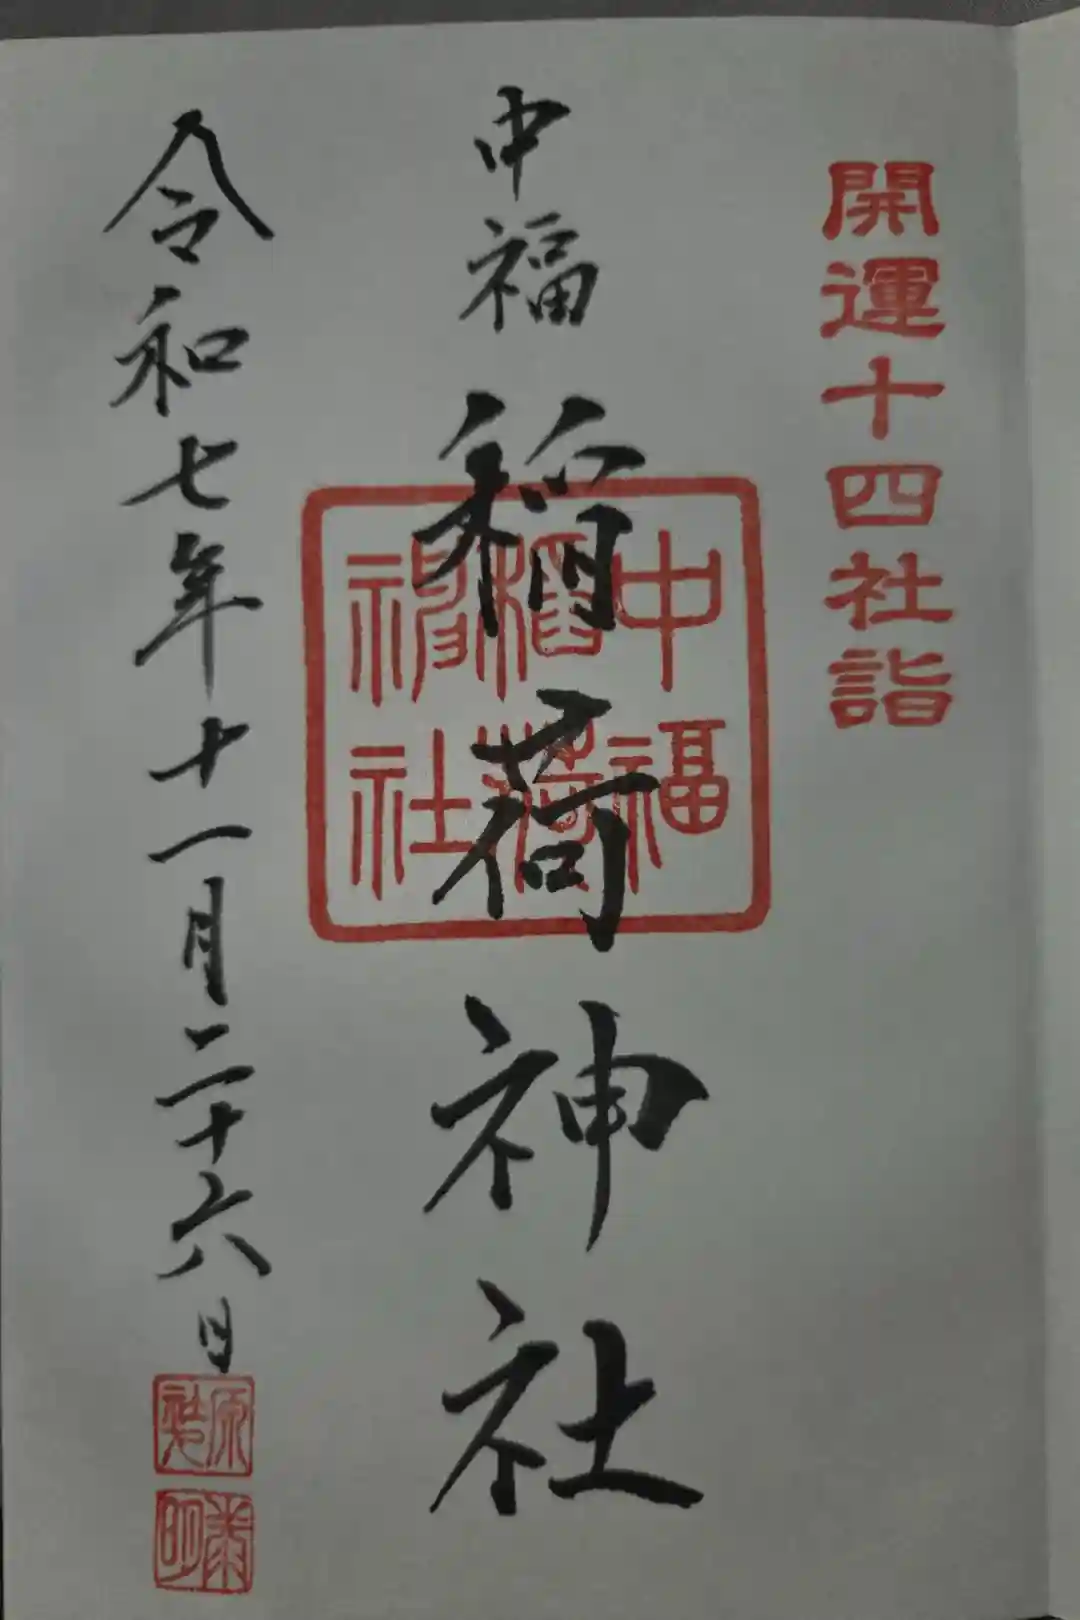 開運十四社詣
中福稲荷神社
中福
稲荷
神社
令和七年十一月二十六日